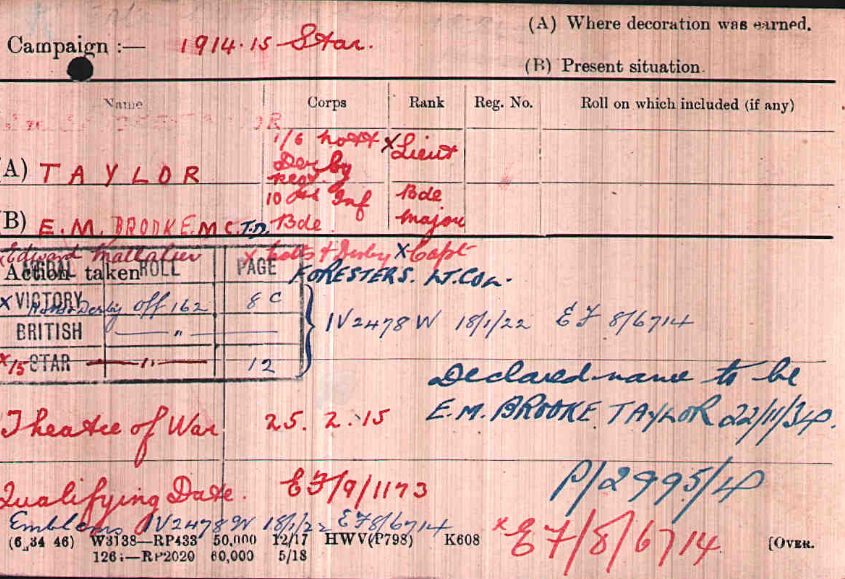 (A) Where decoration was earned.
Campaign :— 1914-15 Star.
(B) Present situation.
Name Corps Rank Reg. No. Roll on which included (if any)
1/6 Notts x Lieut
Derby
(A) TAYLOR Regt
10th Inf Bde
(B) E.M. BROOKE. M.C. T.D. Bde. Major
Edward x Notts + Derby x Capt
Action taken
MEDAL ROLL PAGE FORESTERS. LT. COL.
x VICTORY Notts & Derby Off 162 8 C
BRITISH — " — IV2478W 18/1/22 EF 8/6714
x 15 STAR — " — 12
Declared name to be
E.M. BROOKE TAYLOR 22/11/34.
Theatre of War 25.2.15
P/2995/4
Qualifying Date. EF/9/1173
Emblems IV2478W 18/1/22 EF8/6714
x EF/8/6714
(6 34 46) W3138—RP433 50,000 12/17 HWV(P798) K608 [OVER.
126 —RP2020 60,000 5/18